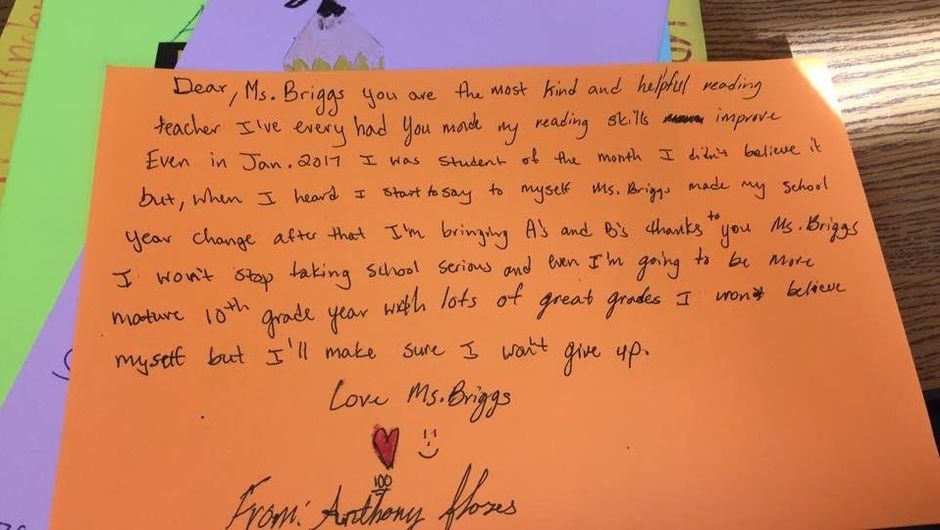 Dear, Ms. Briggs you are the most kind and helpful reading
teacher I've every had You made my reading skills improve
Even in Jan. 2017 I was student of the month I didn't believe it
but, when I heard I start to say to myself Ms. Briggs made my school
year change after that I'm bringing A's and B's thanks to you Ms. Briggs
I won't stop taking school serious and even I'm going to be more
mature 10th grade year with lots of great grades I won't believe
myself but I'll make sure I won't give up.
Love Ms. Briggs
100
From: Anthony flores